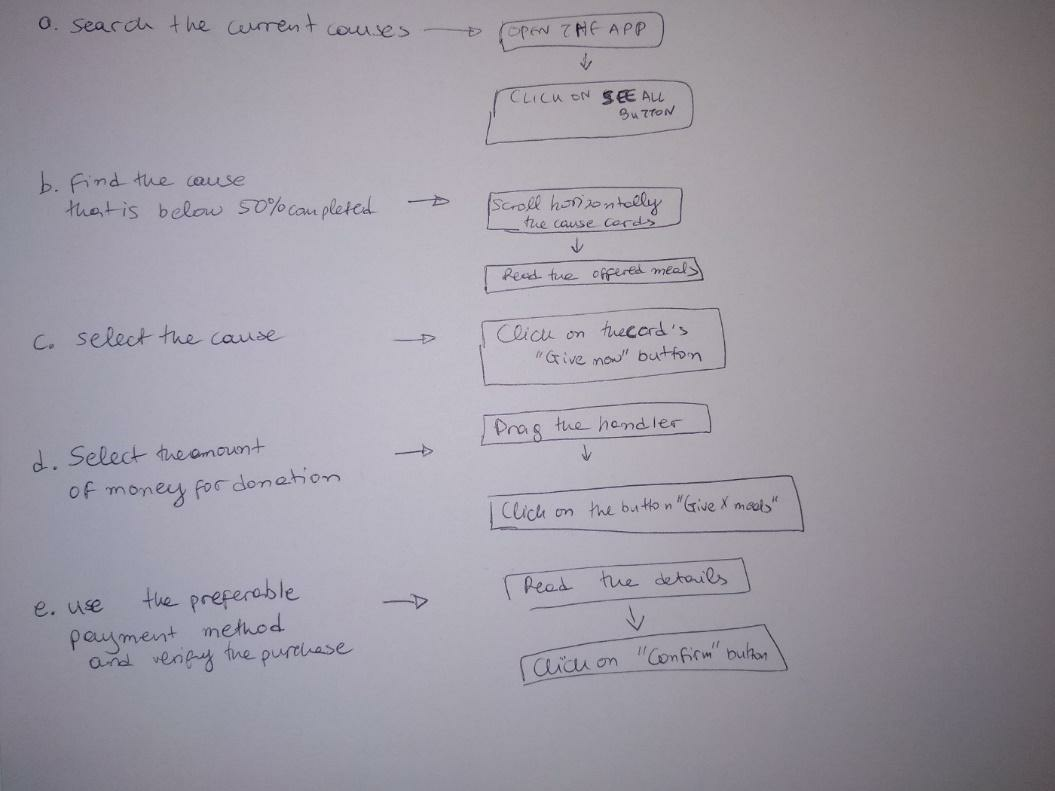 a. search the current causes
OPEN THE APP
CLICK ON SEE ALL
BUTTON
b. Find the cause
that is below 50% completed
Scroll horizontally
the cause cards
Read the offered meals
c. select the cause
Click on the card's
"Give now" button
d. Select the amount
of money for donation
Drag the handler
Click on the button "Give X meals"
e. use the preferable
payment method
and verify the purchase
Read the details
Click on "Confirm" button